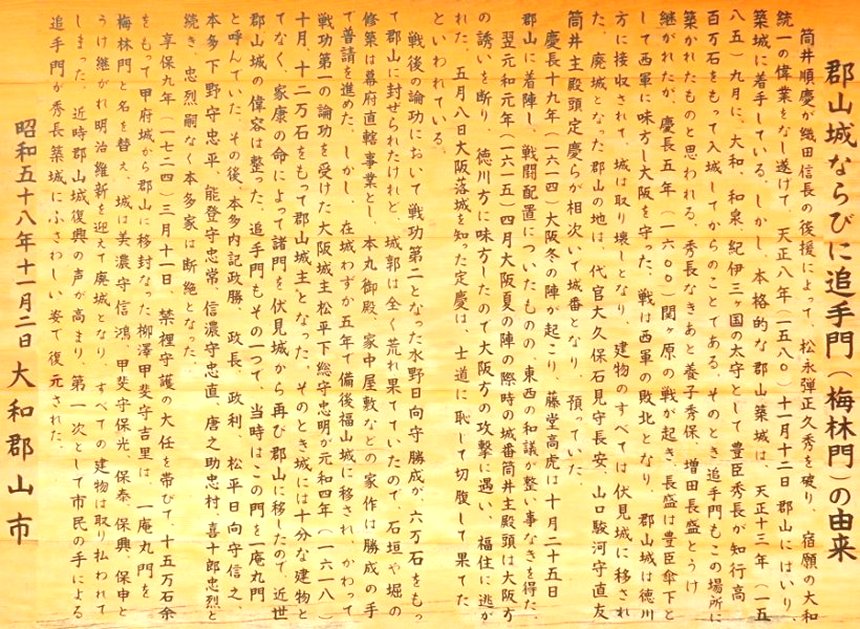 郡山城ならびに追手門(梅林門)の由来
筒井順慶が織田信長の後援によって、松永弾正久秀を破り、宿願の大和
統一の偉業をなし遂げて、天正八年(一五八〇)十一月十二日郡山にはいり、
築城に着手している。しかし、本格的な郡山築城は、天正十三年(一五
八五)九月に、大和 和泉 紀伊三ヶ国の太守として豊臣秀長が知行高
百万石をもって入城してからのことである。そのとき追手門もこの場所に
築かれたものと思われる。秀長なきあと養子秀保、増田長盛とうけ
継がれたが、慶長五年(一六〇〇)関ヶ原の戦が起き、長盛は豊臣傘下と
して西軍に味方し大阪を守った。戦は西軍の敗北となり、郡山城は徳川
方に接収されて、城は取り壊しとなり、建物のすべては伏見城に移され
た。廃城となった郡山の地は、代官大久保石見守長安、山口駿河守直友
筒井主殿頭定慶らが相次いで城番となり、預っていた。
慶長十九年(一六一四)大阪冬の陣が起こり、藤堂高虎は十月二十五日
郡山に着陣し、戦闘配置についたものの、東西の和議が整い事なきを得た。
翌元和元年(一六一五)四月大阪夏の陣の際時の城番筒井主殿頭は大阪方
の誘いを断り、徳川方に味方したので大阪方の攻撃に遇い、福住に逃が
れた。五月八日大阪落城を知った定慶は、士道に恥じて切腹して果てた
といわれている。
戦後の論功において戦功第二となった水野日向守勝成が、六万石をもっ
て郡山に封ぜられたけれど、城郭は全く荒れ果てていたので、石垣や堀の
修築は幕府直轄事業とし、本丸御殿、家中屋敷などの家作は勝成の手
で普請を進めた。しかし、在城わずか五年で備後福山城に移され、かわって
戦功第一の論功を受けた大阪城主松平下総守忠明が元和四年(一六一八)
十月、十二万石をもって郡山城主となった。そのとき城には十分な建物と
てなく、家康の命によって諸門を伏見城から再び郡山に移したので、近世
郡山城の偉容は整った。追手門もその一つで、当時はこの門を一庵丸門
と呼んでいた。その後、本多内記政勝、政長、政利、松平日向守信之、
本多下野守忠平、能登守忠常、信濃守忠直、唐之助忠村、喜十郎忠烈と
続き、忠烈嗣なく本多家は断絶となった。
享保九年(一七二四)三月十一日、禁裡守護の大任を帯びて、十五万石余
をもって甲府城から郡山に移封なった柳澤甲斐守吉里は、一庵丸門を
梅林門と名を替え、城は美濃守信鴻、甲斐守保光、保泰、保興、保申と
うけ継がれ明治維新を迎えて廃城となり、すべての建物は取り払われて
しまった。近時郡山城復興の声が高まり、第一次として市民の手による
追手門が秀長築城にふさわしい姿で復元された。
昭和五十八年十一月二日 大和郡山市